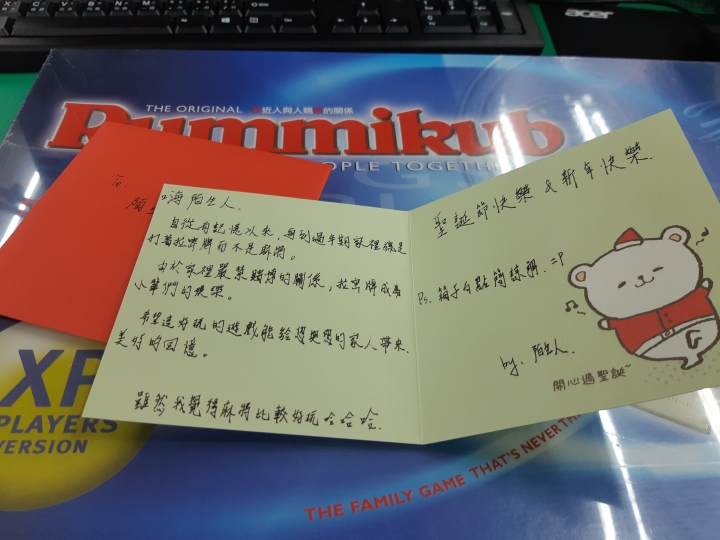 acer
THE ORIGINAL 近人與人親的關係
Rummikub
OPLE TOGETH
To:
陌生
嗨 陌生人.
自從有記憶以來,每到過年期家裡總是
打著拉密牌而不是麻將。
由於家裡嚴禁賭博的關係,拉密牌成為
小輩們的娛樂。
希望這好玩的遊戲能給您與您的家人帶來
美好的回憶。
雖然我覺得麻將比較好玩 哈哈哈.
聖誕節快樂 & 新年快樂.
Ps. 箱子有點簡諒解. =P
by. 陌生人.
開心過聖誕~
XP
PLAYERS
VERSION
THE FAMILY GAME THAT'S NEVER TH